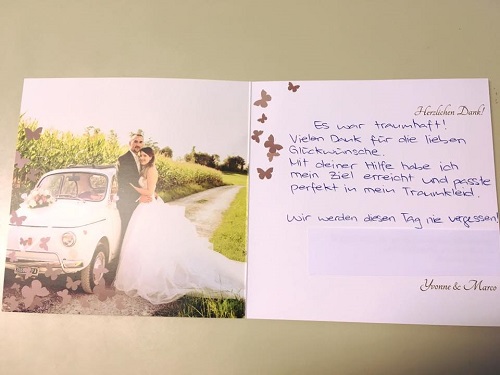 Herzlichen Dank!
Es war traumhaft!
Vielen Dank für die lieben
Glückwünsche.
Mit deiner Hilfe habe ich
mein Ziel erreicht und passte
perfekt in mein Traumkleid.
Wir werden diesen Tag nie vergessen!
Yvonne & Marco